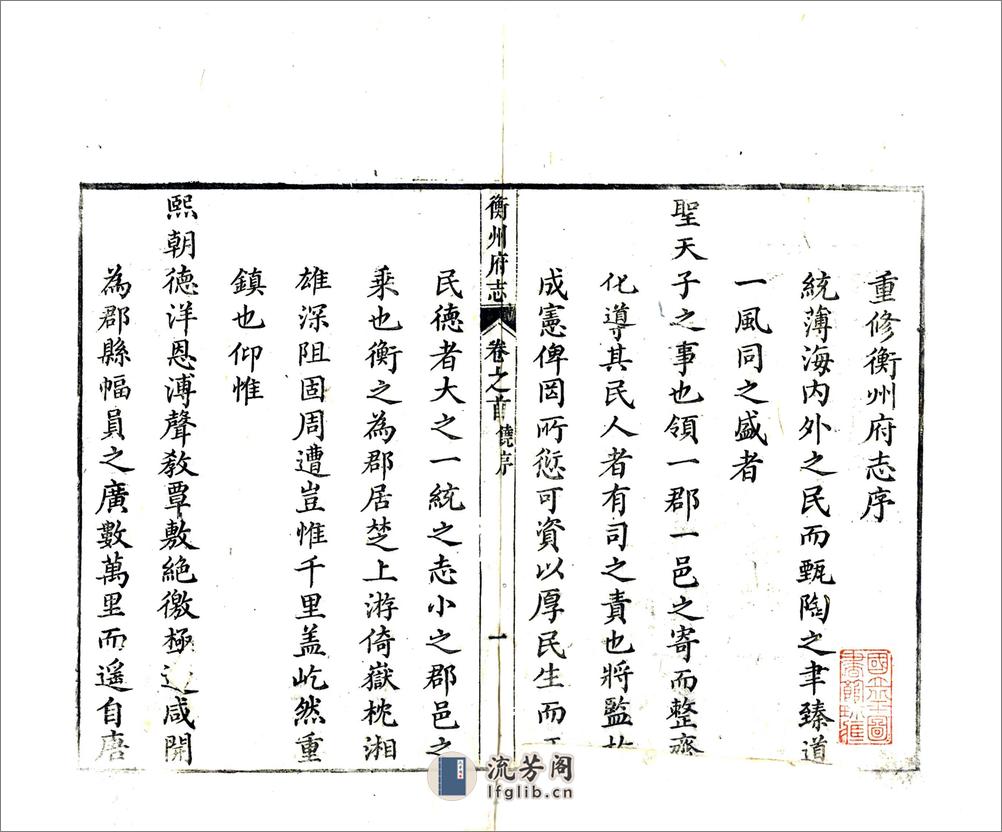 重修衡州府志序
統薄海内外之民而甄陶之聿臻道
一風同之盛者
聖天子之事也領一郡一邑之寄而整齊
化導其民人者有司之責也將監
成憲俾罔所愆可資以厚民生而
衡州府志 卷之首 饒序 一
民德者大之一統之志小之郡邑之
乗也衡之為郡居楚上游倚嶽枕湘
雄深阻固周遭豈惟千里盖屹然重
鎮也仰惟
熙朝德洋恩溥聲教覃敷絶徼極边咸開
為郡縣幅員之廣數萬里而遥自唐
流芳阁
lfglib.cn